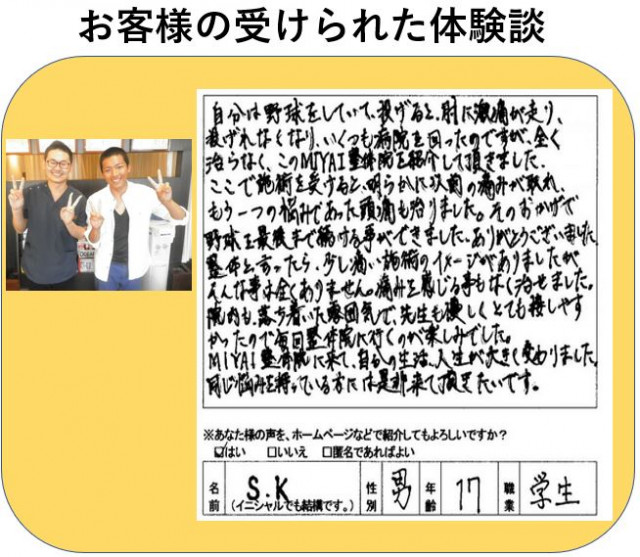 お客様の受けられた体験談
自分は野球をしていて、投げると、肘に激痛が走り、
投げれなくなり、いくつも病院を回ったのですが、全く
治らなく、このMIYAI整体院を紹介して頂きました。
ここで施術を受けると、明らかに以前の痛みが取れ、
もう一つの悩みであった頭痛も治りました。そのおかげで
野球を最後まで続ける事ができました。ありがとうございました。
整体と言ったら、少し痛い施術のイメージがありましたが
そんな事は全くありません。痛みを感じる事もなく治せました。
院内も、落ち着いた雰囲気で、先生も優しくとても接しやす
かったので毎回整体院に行くのが楽しみでした。
MIYAI整体院に来て、自分の生活、人生が大きく変わりました。
同じ悩みを持っている方には是非来て頂きたいです。
※あなた様の声を、ホームページなどで紹介してもよろしいですか?
☑はい □いいえ □匿名であればよい
名前 S.K (イニシャルでも結構です。) 性別 男 年齢 17 職業 学生